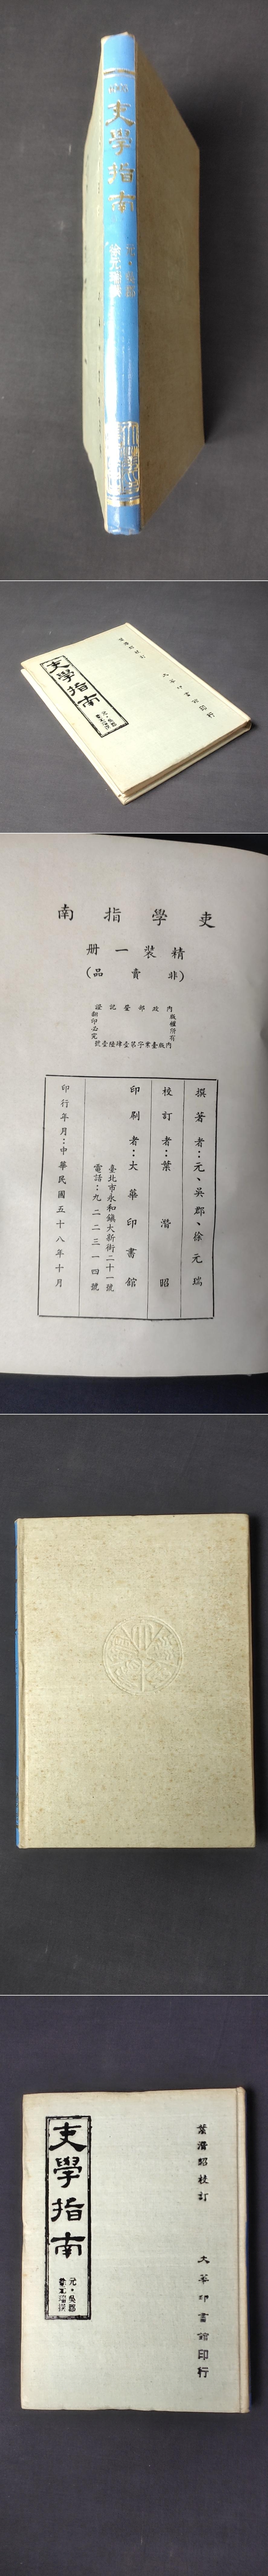 吏學指南
元·吳郡
徐元瑞撰
吏學指南
元·吳郡
徐元瑞撰
吏學指南
精裝一冊
(非賣品)
內政部登記證
內版臺業字第壹肆陸壹號
版權所有
翻印必究
撰著者：元、吳郡、徐元瑞
校訂者：葉潛昭
印刷者：大華印書館
臺北市永和鎮大新街二十一號
電話：九二二三一四號
印行年月：中華民國五十八年十月
葉潛昭校訂
大華印書館印行
吏學指南
元·吳郡
徐元瑞撰